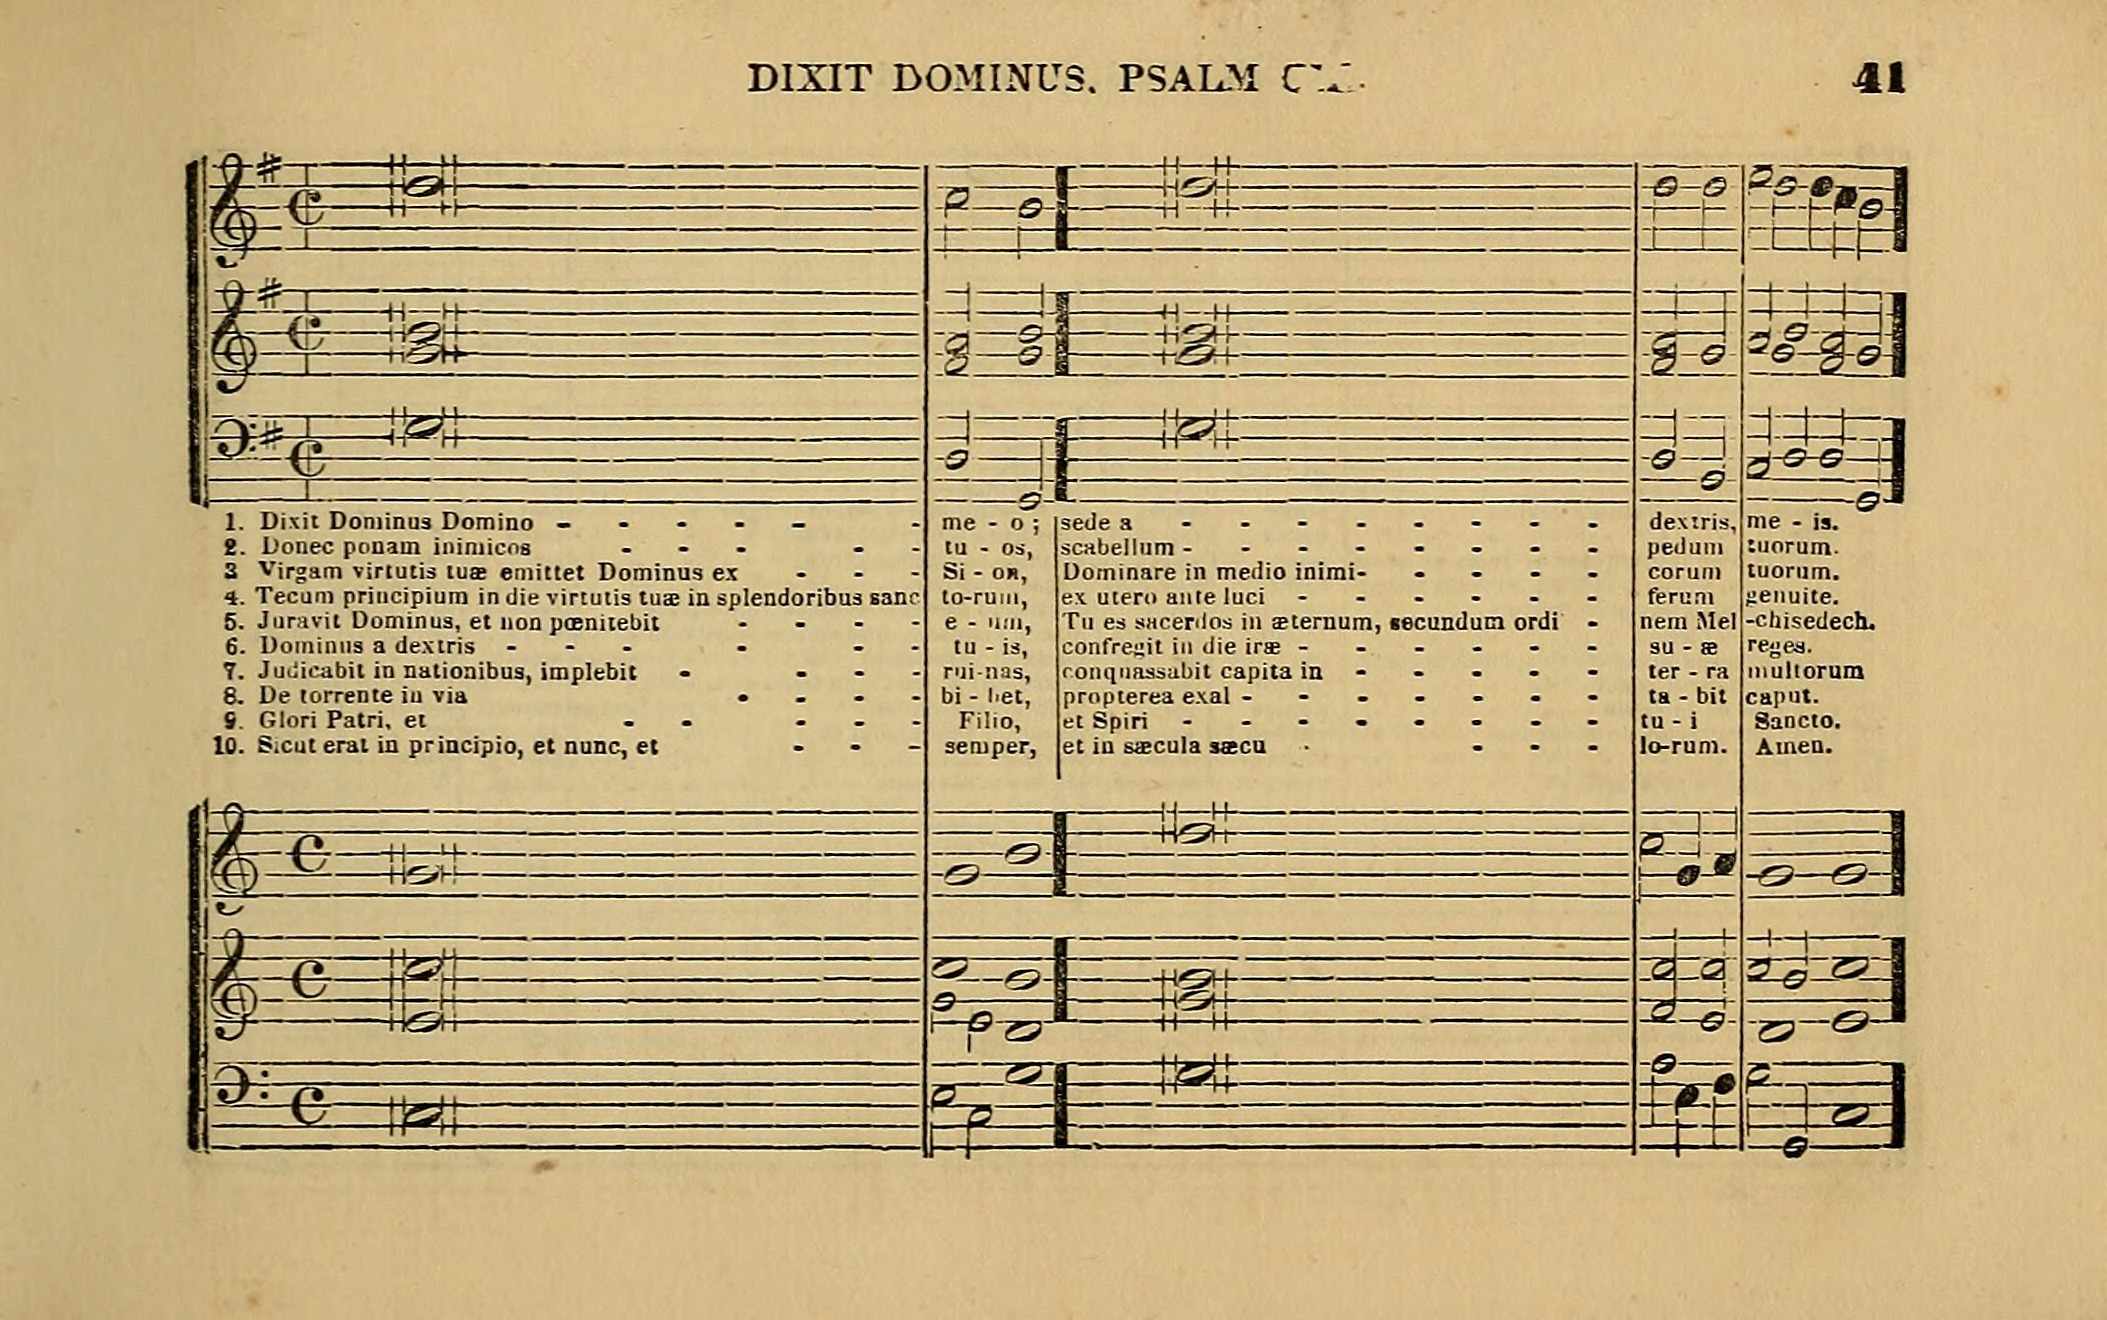 DIXIT DOMINUS. PSALM
41
1. Dixit Dominus Domino - - - - - - me - o; sede a - - - - - - - - dextris, me - is.
2. Donec ponam inimicos - - - - - tu - os, scabellum - - - - - - - - pedum tuorum.
3 Virgam virtutis tuæ emittet Dominus ex - - - Si - on, Dominare in medio inimi- - - - - corum tuorum.
4. Tecum principium in die virtutis tuæ in splendoribus sanc to-rum, ex utero ante luci - - - - - - ferum genuite.
5. Juravit Dominus, et non pœnitebit - - - - e - um, Tu es sacerdos in æternum, secundum ordi - nem Mel -chisedech.
6. Dominus a dextris - - - - - - tu - is, confregit in die iræ - - - - - - su - æ reges.
7. Judicabit in nationibus, implebit - - - - rui-nas, conquassabit capita in - - - - - ter - ra multorum
8. De torrente in via - - - - bi - bet, propterea exal - - - - - - - ta - bit caput.
9. Glori Patri, et - - - - - Filio, et Spiri - - - - - - - - tu - i Sancto.
10. Sicut erat in principio, et nunc, et - - - semper, et in sæcula sæcu - - - - lo-rum. Amen.